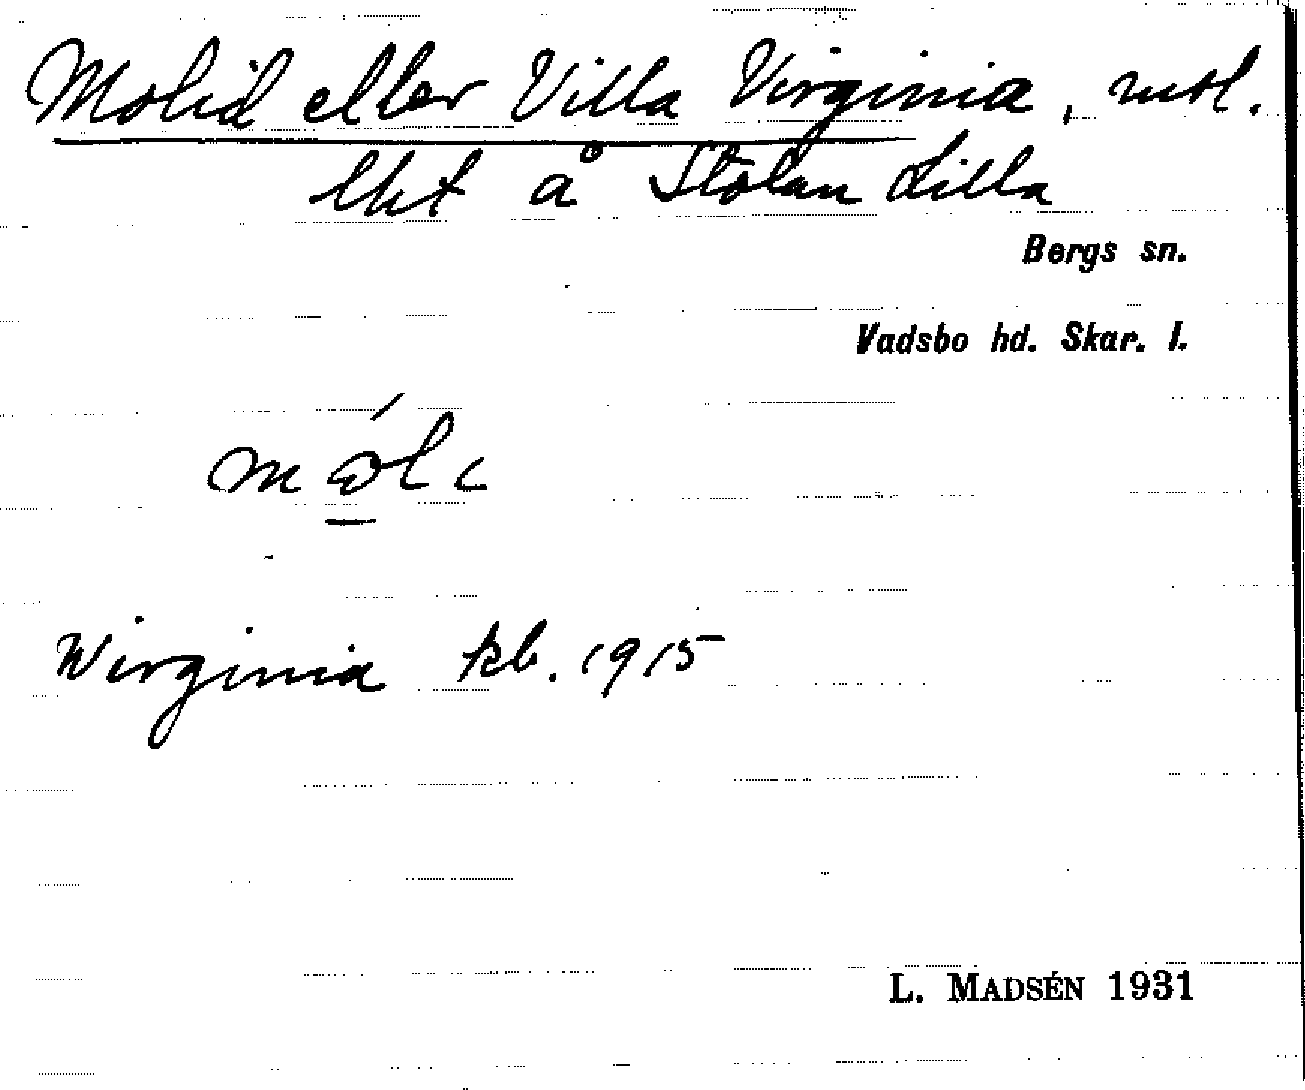 Molid eller Villa Virginia, nsl.
lht å Stolan Lilla
Bergs sn.
Vadsbo hd. Skar. l.
Wirginia kb. 1915
L. MADSÉN 1931